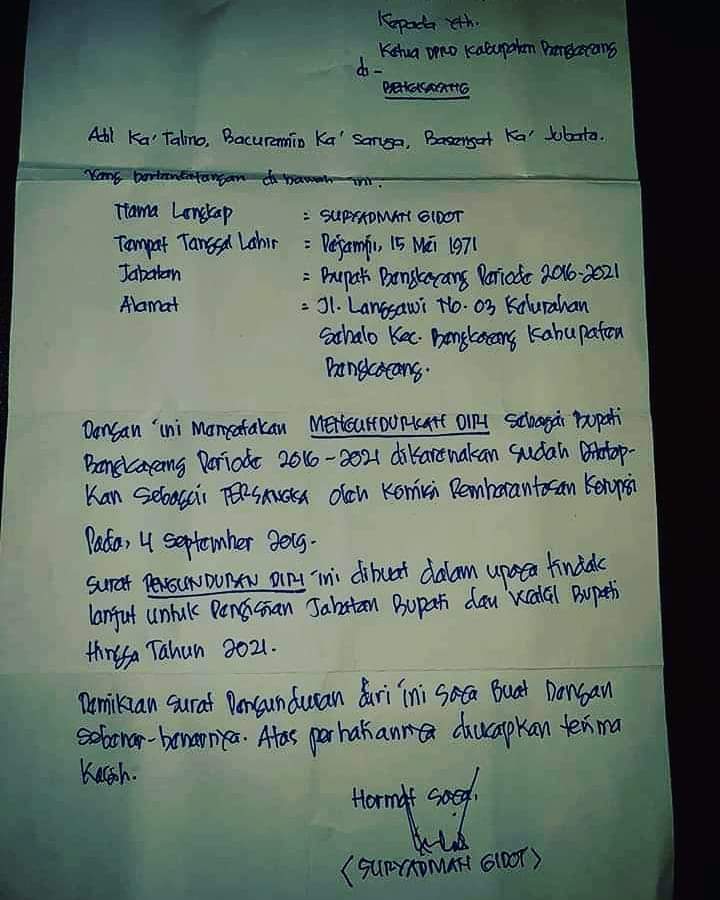 Kepada Yth.
Ketua DPRD Kabupaten Bengkayang
di-
BENGKAYANG
Adil Ka' Talino, Bacuramin Ka' Saruga, Basengat Ka' Jubata.
Yang bertandatangan di bawah ini:
Nama Lengkap : SURYADMAN GIDOT
Tempat Tanggal Lahir : Pejampi, 15 Mei 1971
Jabatan : Bupati Bengkayang Periode 2016-2021
Alamat : Jl. Langsawi No. 03 Kelurahan
Sebalo Kec. Bengkayang Kabupaten
Bengkayang.
Dengan ini Menyatakan MENGUNDURKAN DIRI Sebagai Bupati
Bengkayang Periode 2016-2021 dikarenakan sudah Ditetap-
kan Sebagai TERSANGKA oleh Komisi Pemberantasan Korupsi
Pada, 4 September 2019.
Surat PENGUNDURAN DIRI ini dibuat dalam upaya tindak
lanjut untuk Pengisian Jabatan Bupati dan Wakil Bupati
hingga Tahun 2021.
Demikian Surat Pengunduran diri ini Saya Buat Dengan
sebenar-benarnya. Atas perhatiannya diucapkan terima
Kasih.
Hormat Saya,
(SURYADMAN GIDOT)